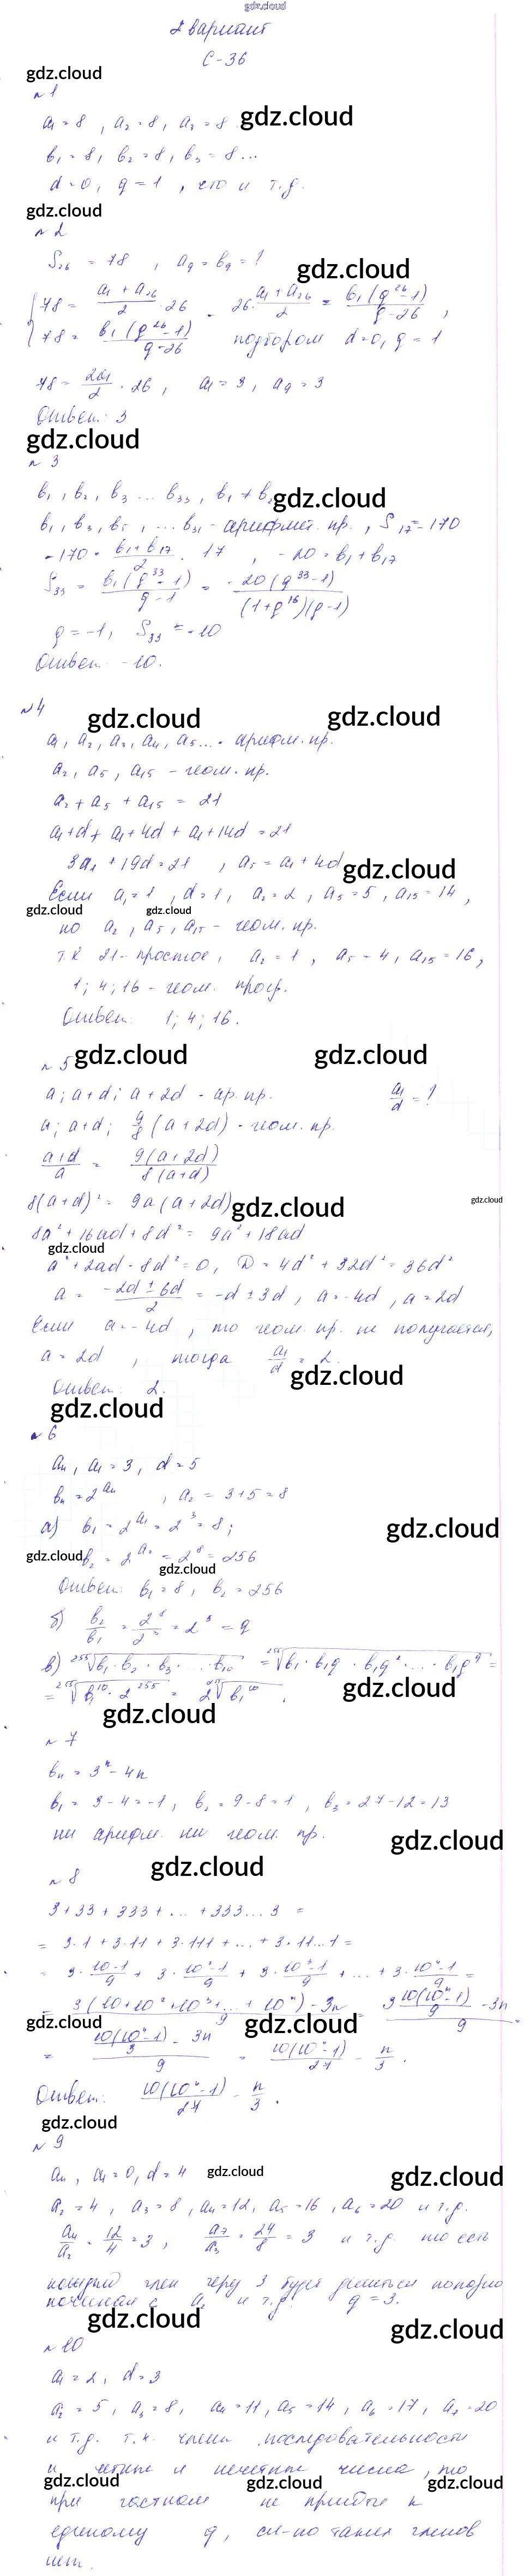 gdz.cloud
2 вариант
С-36
gdz.cloud
№1
a₁ = 8, a₂ = 8, a₃ = 8 gdz.cloud
b₁ = 8, b₂ = 8, b₃ = 8...
d = 0, q = 1, это и т.д.
gdz.cloud
№2
S₂₆ = 78, a₉ = b₉ = ? gdz.cloud
78 = (a₁ + a₂₆)/2 · 26, 26 · (a₁ + a₂₆)/2 = b₁(q²⁶-1)/(q-26),
78 = b₁(q²⁶-1)/(q-26) подбором d=0, q = 1
78 = 2a₁/2 · 26, a₁ = 3, a₉ = 3
Ответ: 3
gdz.cloud
№3
b₁, b₂, b₃ ... b₃₃, b₁ ≠ b₂ gdz.cloud
b₁, b₃, b₅, ... b₃₁ - арифмет. пр., S₁₇ = -170
-170 = (b₁ + b₁₇)/2 · 17, -20 = b₁ + b₁₇
S₃₃ = b₁(q³³-1)/(q-1) = -20(q³³-1)/((1+q¹⁶)(q-1))
q = -1, S₃₃ = -10
Ответ: -10.
№4
gdz.cloud gdz.cloud
a₁, a₂, a₃, a₄, a₅... - арифм. пр.
a₂, a₅, a₁₅ - геом. пр.
a₂ + a₅ + a₁₅ = 21
a₁+d + a₁+4d + a₁+14d = 21
3a₁ + 19d = 21, a₅ = a₁ + 4d gdz.cloud
Если a₁ = 1, d = 1, a₂ = 2, a₅ = 5, a₁₅ = 14,
gdz.cloud gdz.cloud
но a₂, a₅, a₁₅ - геом. пр.
т.к 21 - простое, a₂ = 1, a₅ = 4, a₁₅ = 16,
1; 4; 16 - геом. прогр.
Ответ: 1; 4; 16.
№5 gdz.cloud gdz.cloud
a; a+d; a+2d - ар. пр. a₁/d = ?
a; a+d; 9/8 (a+2d) - геом. пр.
(a+d)/a = 9(a+2d)/8(a+d)
8(a+d)² = 9a(a+2d) gdz.cloud gdz.cloud
8a² + 16ad + 8d² = 9a² + 18ad
gdz.cloud
a² + 2ad - 8d² = 0, D = 4d² + 32d² = 36d²
a = (-2d ± 6d)/2 = -d ± 3d, a = -4d, a = 2d
Если a = -4d, то геом. пр. не получается,
a = 2d, тогда a₁/d = 2.
gdz.cloud
Ответ: 2.
gdz.cloud
№6
aₙ, a₁ = 3, d = 5
bₙ = 2^aₙ, a₂ = 3+5 = 8
а) b₁ = 2^a₁ = 2³ = 8; gdz.cloud
gdz.cloud b₂ = 2^a₂ = 2⁸ = 256
gdz.cloud
Ответ: b₁ = 8, b₂ = 256
б) b₂/b₁ = 2⁸/2³ = 2⁵ = q
в) ²⁵⁵√(b₁ · b₂ · b₃ · ... · b₁₀) = ²⁵⁵√(b₁ · b₁q · b₁q² · ... · b₁q⁹) =
= ²⁵⁵√(b₁¹⁰ · 2²⁵⁵) = 2 ²⁵⁵√(b₁¹⁰). gdz.cloud
gdz.cloud
№7
bₙ = 3ⁿ - 4n
b₁ = 3 - 4 = -1, b₂ = 9 - 8 = 1, b₃ = 27 - 12 = 13
ни арифм. ни геом. пр. gdz.cloud
gdz.cloud
№8
3 + 33 + 333 + ... + 333...3 =
= 3·1 + 3·11 + 3·111 + ... + 3·11...1 =
= 3 · (10-1)/9 + 3 · (10²-1)/9 + 3 · (10³-1)/9 + ... + 3 · (10ⁿ-1)/9 =
= (3(10 + 10² + 10³ + ... + 10ⁿ) - 3n)/9 = (3 · 10(10ⁿ-1)/9 - 3n)/9 =
gdz.cloud gdz.cloud
= (10(10ⁿ-1)/3 - 3n)/9 = 10(10ⁿ-1)/27 - n/3.
Ответ: 10(10ⁿ-1)/27 - n/3.
gdz.cloud
№9
aₙ, a₁ = 0, d = 4 gdz.cloud gdz.cloud
a₂ = 4, a₃ = 8, a₄ = 12, a₅ = 16, a₆ = 20 и т.д.
a₄/a₂ = 12/4 = 3, a₇/a₃ = 24/8 = 3 и т.д. то есть
каждый член через 3 будет делиться попарно
начиная с a₂ и т.д. q = 3.
gdz.cloud gdz.cloud
№10
a₁ = 2, d = 3
a₂ = 5, a₃ = 8, a₄ = 11, a₅ = 14, a₆ = 17, a₇ = 20
и т.д. т.к. члены последовательности
и четные и нечетные числа, то
gdz.cloud gdz.cloud gdz.cloud
при частном не придти к
единому q, сл-но таких членов
нет.